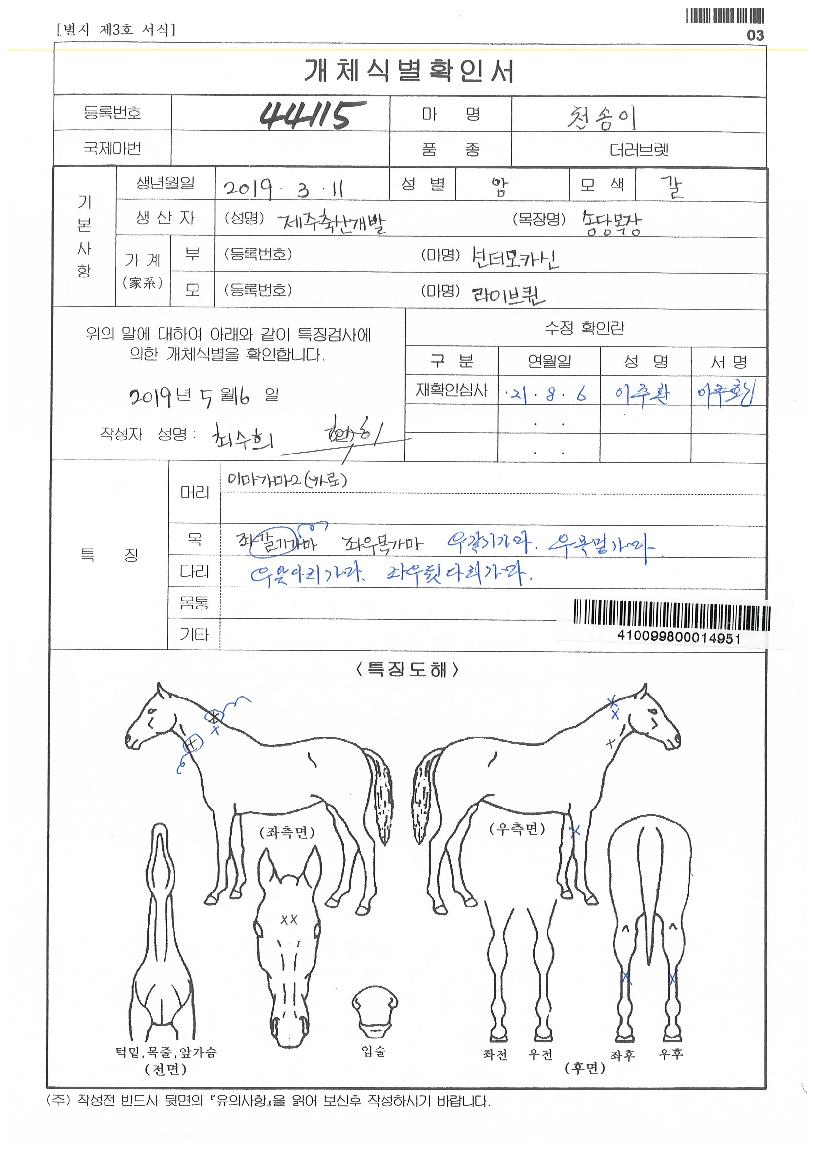 [별지 제3호 서식]
03
개체식별확인서
등록번호 44115 마 명 천송이
국제마번 품 종 더러브렛
기본사항
생년월일 2019 · 3 · 11 성 별 암 모 색 갈
생 산 자 (성명) 제주축산개발 (목장명) 송당목장
가 계 (家系) 부 (등록번호) (마명) 선더모카신
모 (등록번호) (마명) 라이브퀸
위의 말에 대하여 아래와 같이 특징검사에
의한 개체식별을 확인합니다.
2019 년 5 월 16 일
작성자 성명 : 최수희
수정 확인란
구 분 연월일 성 명 서 명
재확인심사 ·21 · 8 · 6 이주환
· ·
· ·
특 징
머리 이마가마2(가로)
목 좌갈기가마 좌우목가마 우갈기가마.
다리 좌우뒷다리가마.
몸통
기타
410099800014951
<특징도해>
(좌측면)
(우측면)
턱밑,목줄,앞가슴
(전면)
입술
좌전 우전
좌후 우후
(후면)
(주) 작성전 반드시 뒷면의 『유의사항』을 읽어 보신후 작성하시기 바랍니다.